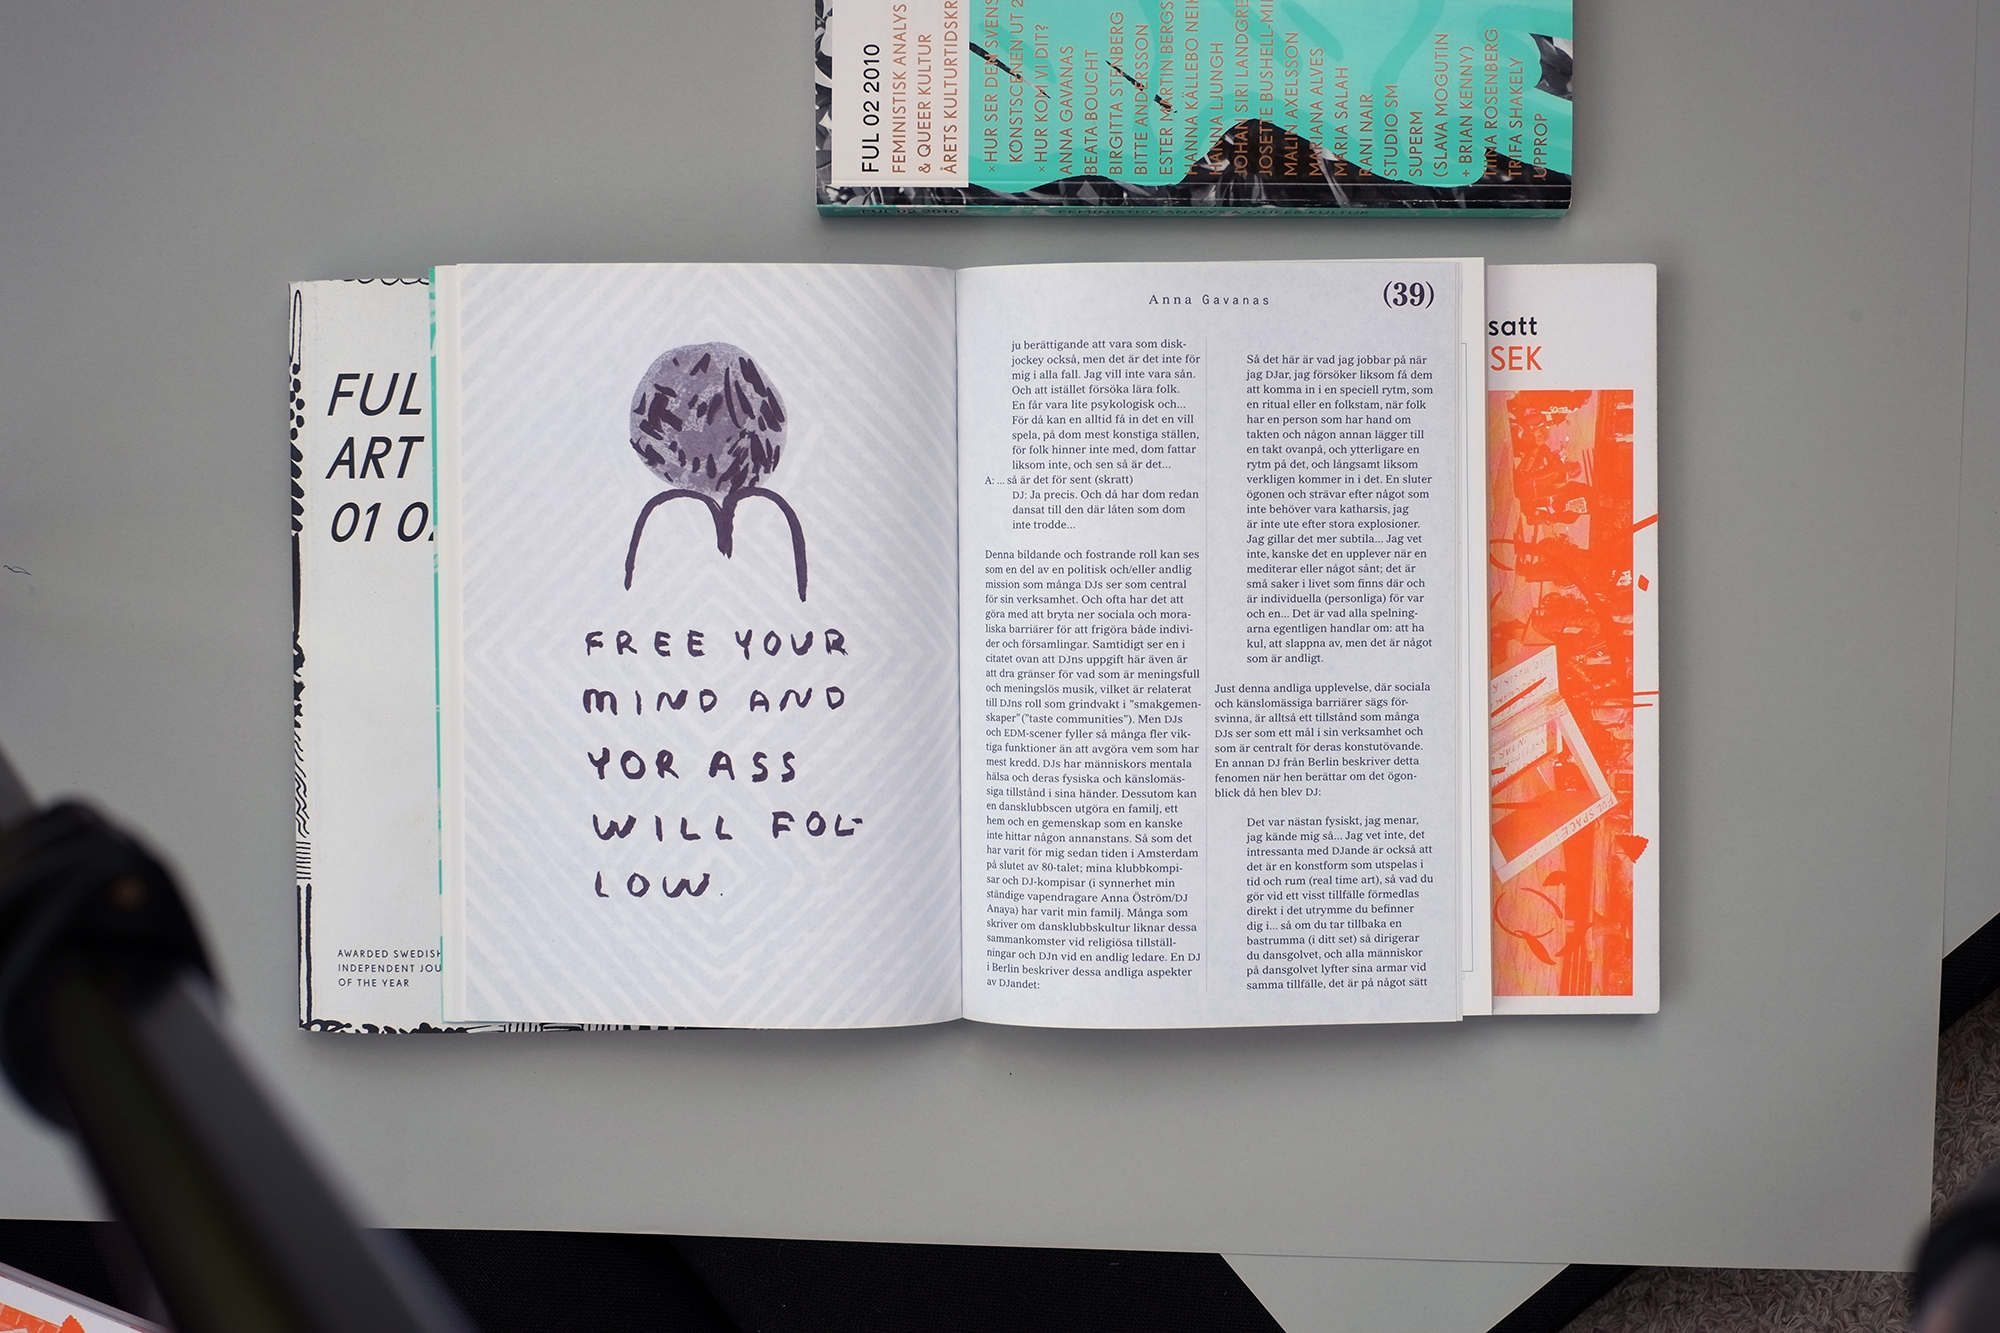 FUL 02 2010
FEMINISTISK ANALYS
& QUEER KULTUR
ÅRETS KULTURTIDSKR
×HUR SER DEN SVENS
KONSTSCENEN UT 2
×HUR KOM VI DIT?
ANNA GAVANAS
BEATA BOUCHT
BIRGITTA STENBERG
BITTE ANDERSSON
ESTER MARTIN BERGS
HANNA KÄLLEBO NEI
HANNA LJUNGH
JOHAN SIRI LANDGRE
JOSETTE BUSHELL-MI
MALIN AXELSSON
MARIANA ALVES
MARIA SALAH
RANI NAIR
STUDIO SM
SUPERM
(SLAVA MOGUTIN
+ BRIAN KENNY)
TIINA ROSENBERG
TRIFA SHAKELY
UPPROP
FUL 02 2010 FEMINISTISK ANALYS & QUEER KULTUR
FUL
ART
01 0
AWARDED SWEDISH
INDEPENDENT JOU
OF THE YEAR
FREE YOUR
MIND AND
YOR ASS
WILL FOL-
LOW.
Anna Gavanas
(39)
ju berättigande att vara som disk-
jockey också, men det är det inte för
mig i alla fall. Jag vill inte vara sån.
Och att istället försöka lära folk.
En får vara lite psykologisk och...
För då kan en alltid få in det en vill
spela, på dom mest konstiga ställen,
för folk hinner inte med, dom fattar
liksom inte, och sen så är det...
A: ... så är det för sent (skratt)
DJ: Ja precis. Och då har dom redan
dansat till den där låten som dom
inte trodde...
Denna bildande och fostrande roll kan ses
som en del av en politisk och/eller andlig
mission som många DJs ser som central
för sin verksamhet. Och ofta har det att
göra med att bryta ner sociala och mora-
liska barriärer för att frigöra både indivi-
der och församlingar. Samtidigt ser en i
citatet ovan att DJns uppgift här även är
att dra gränser för vad som är meningsfull
och meningslös musik, vilket är relaterat
till DJns roll som grindvakt i "smakgemen-
skaper" ("taste communities"). Men DJs
och EDM-scener fyller så många fler vik-
tiga funktioner än att avgöra vem som har
mest kredd. DJs har människors mentala
hälsa och deras fysiska och känslomäs-
siga tillstånd i sina händer. Dessutom kan
en dansklubbscen utgöra en familj, ett
hem och en gemenskap som en kanske
inte hittar någon annanstans. Så som det
har varit för mig sedan tiden i Amsterdam
på slutet av 80-talet; mina klubbkompi-
sar och DJ-kompisar (i synnerhet min
ständige vapendragare Anna Öström/DJ
Anaya) har varit min familj. Många som
skriver om dansklubbskultur liknar dessa
sammankomster vid religiösa tillställ-
ningar och DJn vid en andlig ledare. En DJ
i Berlin beskriver dessa andliga aspekter
av DJandet:
Så det här är vad jag jobbar på när
jag DJar, jag försöker liksom få dem
att komma in i en speciell rytm, som
en ritual eller en folkstam, när folk
har en person som har hand om
takten och någon annan lägger till
en takt ovanpå, och ytterligare en
rytm på det, och långsamt liksom
verkligen kommer in i det. En sluter
ögonen och strävar efter något som
inte behöver vara katharsis, jag
är inte ute efter stora explosioner.
Jag gillar det mer subtila... Jag vet
inte, kanske det en upplever när en
mediterar eller något sånt; det är
små saker i livet som finns där och
är individuella (personliga) för var
och en... Det är vad alla spelning-
arna egentligen handlar om: att ha
kul, att slappna av, men det är något
som är andligt.
Just denna andliga upplevelse, där sociala
och känslomässiga barriärer sägs för-
svinna, är alltså ett tillstånd som många
DJs ser som ett mål i sin verksamhet och
som är centralt för deras konstutövande.
En annan DJ från Berlin beskriver detta
fenomen när hen berättar om det ögon-
blick då hen blev DJ:
Det var nästan fysiskt, jag menar,
jag kände mig så... Jag vet inte, det
intressanta med DJande är också att
det är en konstform som utspelas i
tid och rum (real time art), så vad du
gör vid ett visst tillfälle förmedlas
direkt i det utrymme du befinner
dig i... så om du tar tillbaka en
bastrumma (i ditt set) så dirigerar
du dansgolvet, och alla människor
på dansgolvet lyfter sina armar vid
samma tillfälle, det är på något sätt
satt
SEK